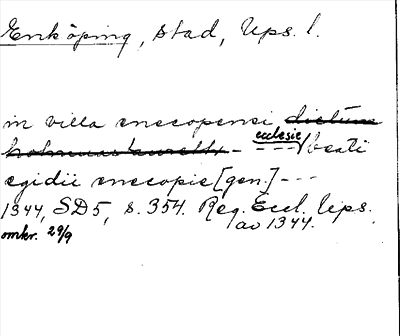 Enköping, stad, Ups. l.
in villa enecopensi dictum
holmuastaurelli - ecclesie --- / beati
egidii enecopie [gen.] ---
1344, SD5, s. 354. Reg. Eccl. Ups.
omkr. 29/9 av 1344.